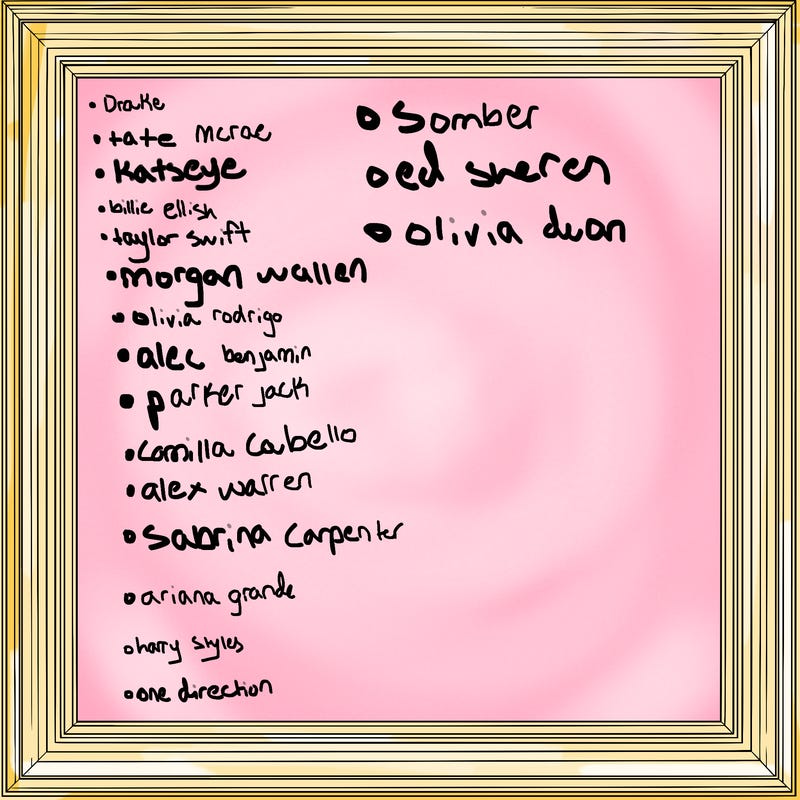 • Drake
• tate mcrae
• Katseye
• billie ellish
• taylor swift
• morgan wallen
• olivia rodrigo
• alec benjamin
• parker jack
• Comilla Cabello
• alex warren
• Sabrina Carpenter
• ariana grande
• harry styles
• one direction
• Somber
• ed sheren
• olivia dean